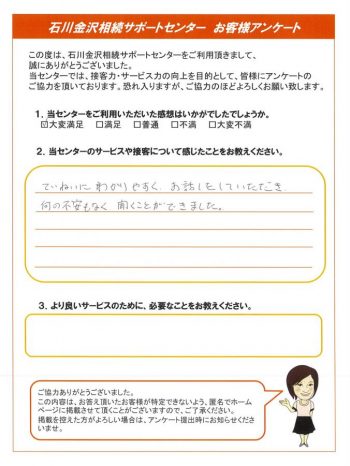 石川金沢相続サポートセンター　お客様アンケート
この度は、石川金沢相続サポートセンターをご利用頂きまして、
誠にありがとうございました。
当センターでは、接客力・サービス力の向上を目的として、皆様にアンケートの
ご協力を頂いております。恐れ入りますが、ご協力のほどよろしくお願い致します。
1．当センターをご利用いただいた感想はいかがでしたでしょうか。
☑大変満足　□満足　□普通　□不満　□大変不満
2．当センターのサービスや接客について感じたことをお教えください。
ていねいに わかりやすく、お話しをしていただき
何の不安もなく 聞くことができました。
3．より良いサービスのために、必要なことをお教えください。
ご協力ありがとうございました。
この内容は、お答え頂いたお客様が特定できないよう、匿名でホーム
ページに掲載させて頂くことがございますので、ご了承ください。
掲載を控えた方がよろしい場合は、アンケート提出時にお知らせくださ
いませ。